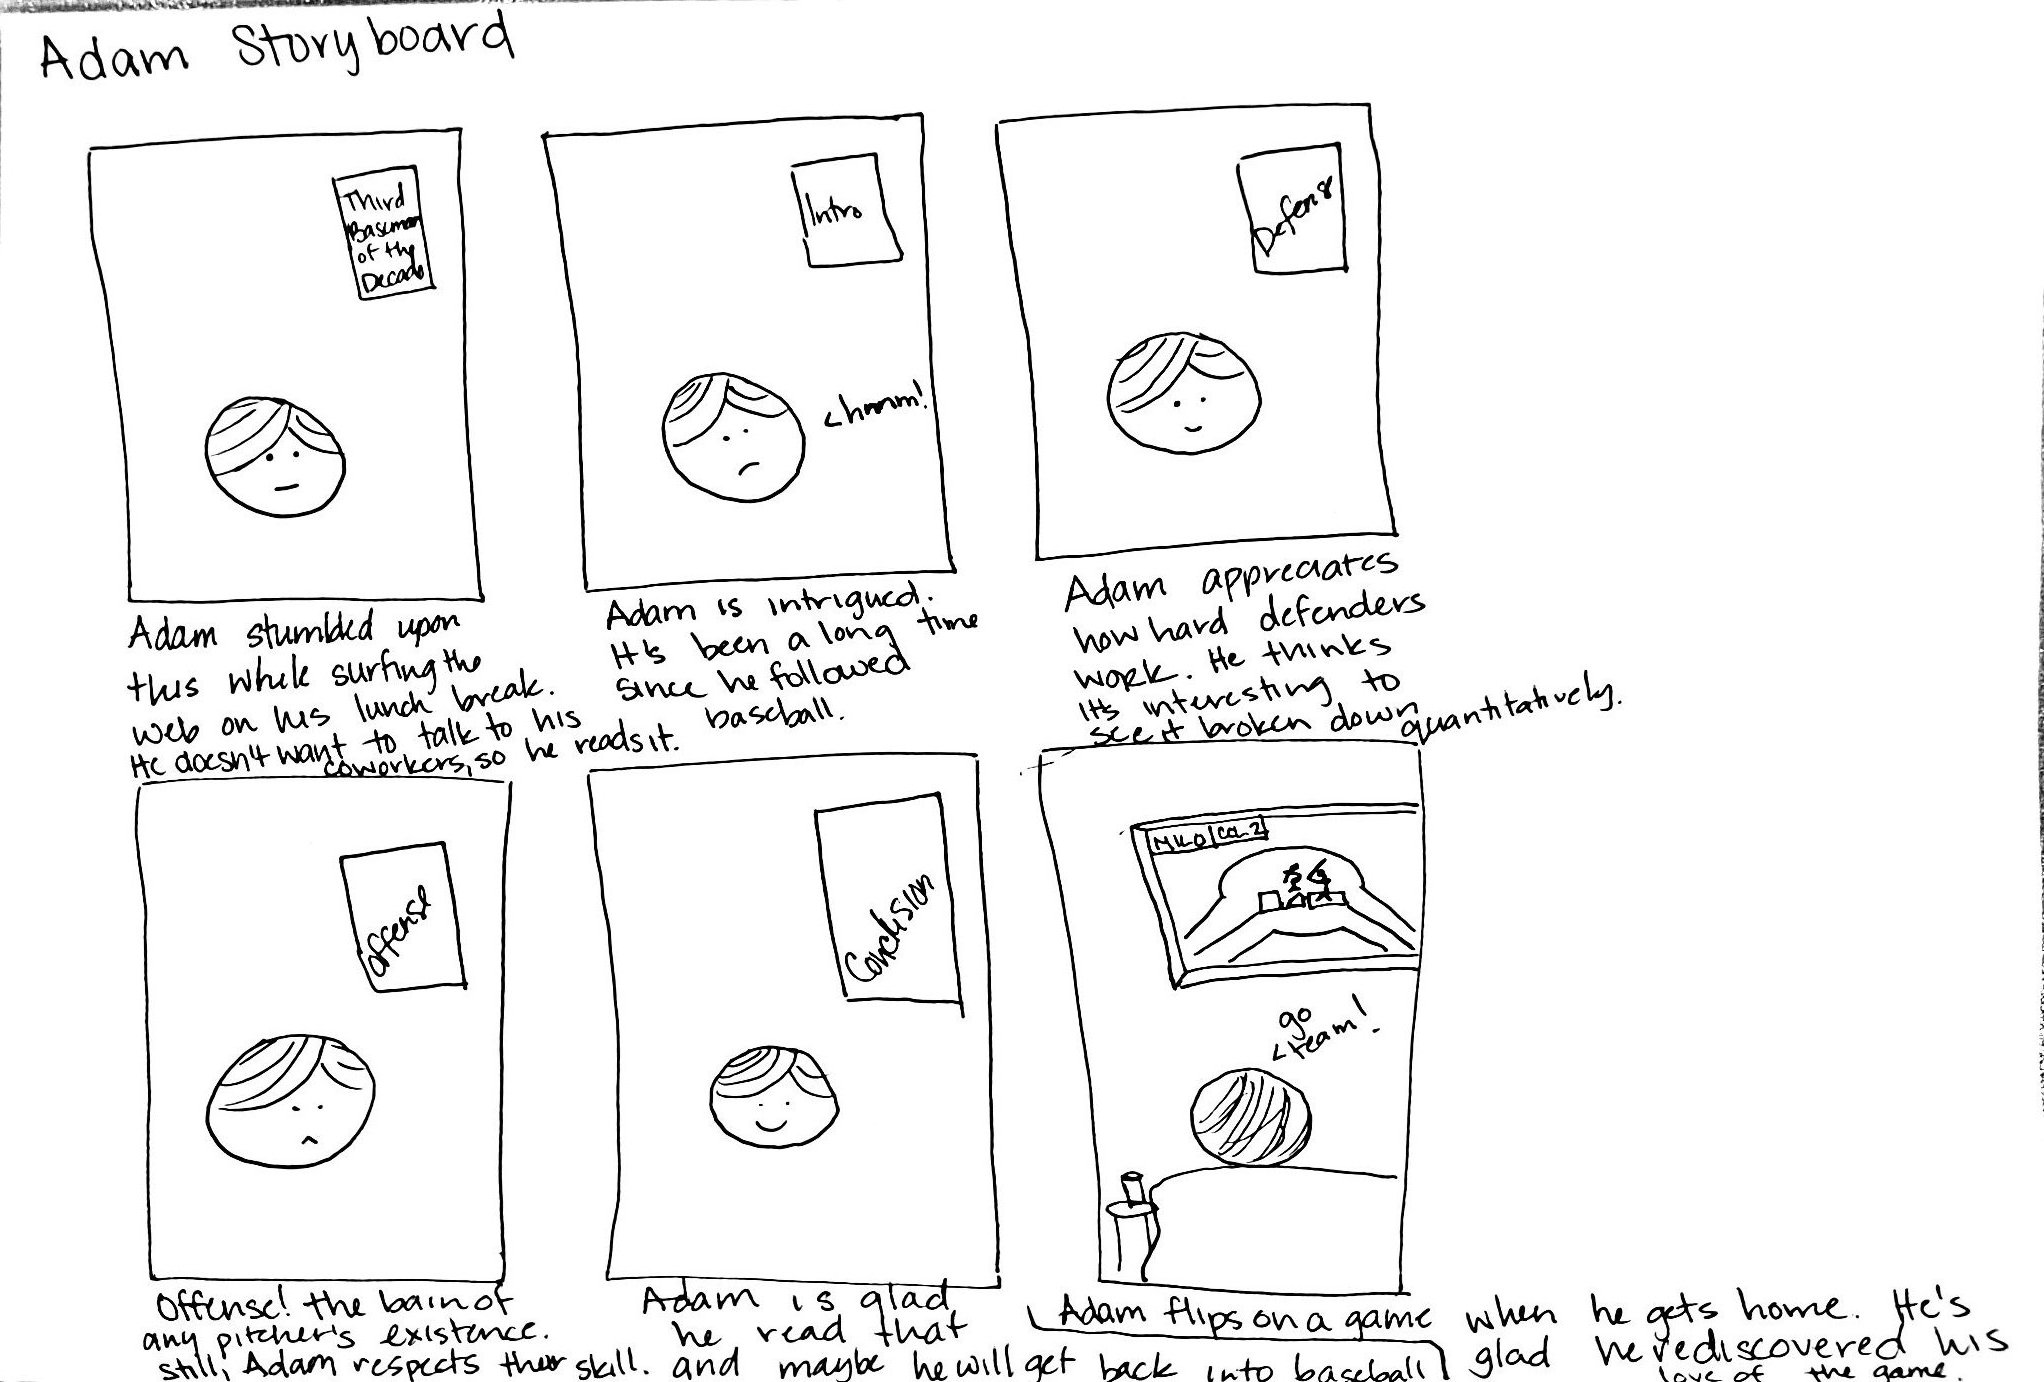 Adam Storyboard
Third
Baseman
of the
Decade
Intro
<hmmm!
Defense
Adam stumbled upon
this while surfing the
web on his lunch break.
He doesn't want to talk to his
coworkers, so he reads it.
Adam is intrigued.
It's been a long time
since he followed
baseball.
Adam appreciates
how hard defenders
work. He thinks
it's interesting to
see it broken down
quantitatively.
Offense
Conclusion
COL 2
go
<team!
Offense! the bain of
any pitcher's existence.
still, Adam respects their skill.
Adam is glad
he read that
and maybe he will get back into baseball
Adam flips on a game when he gets home. He's
glad he rediscovered his
love of the game.